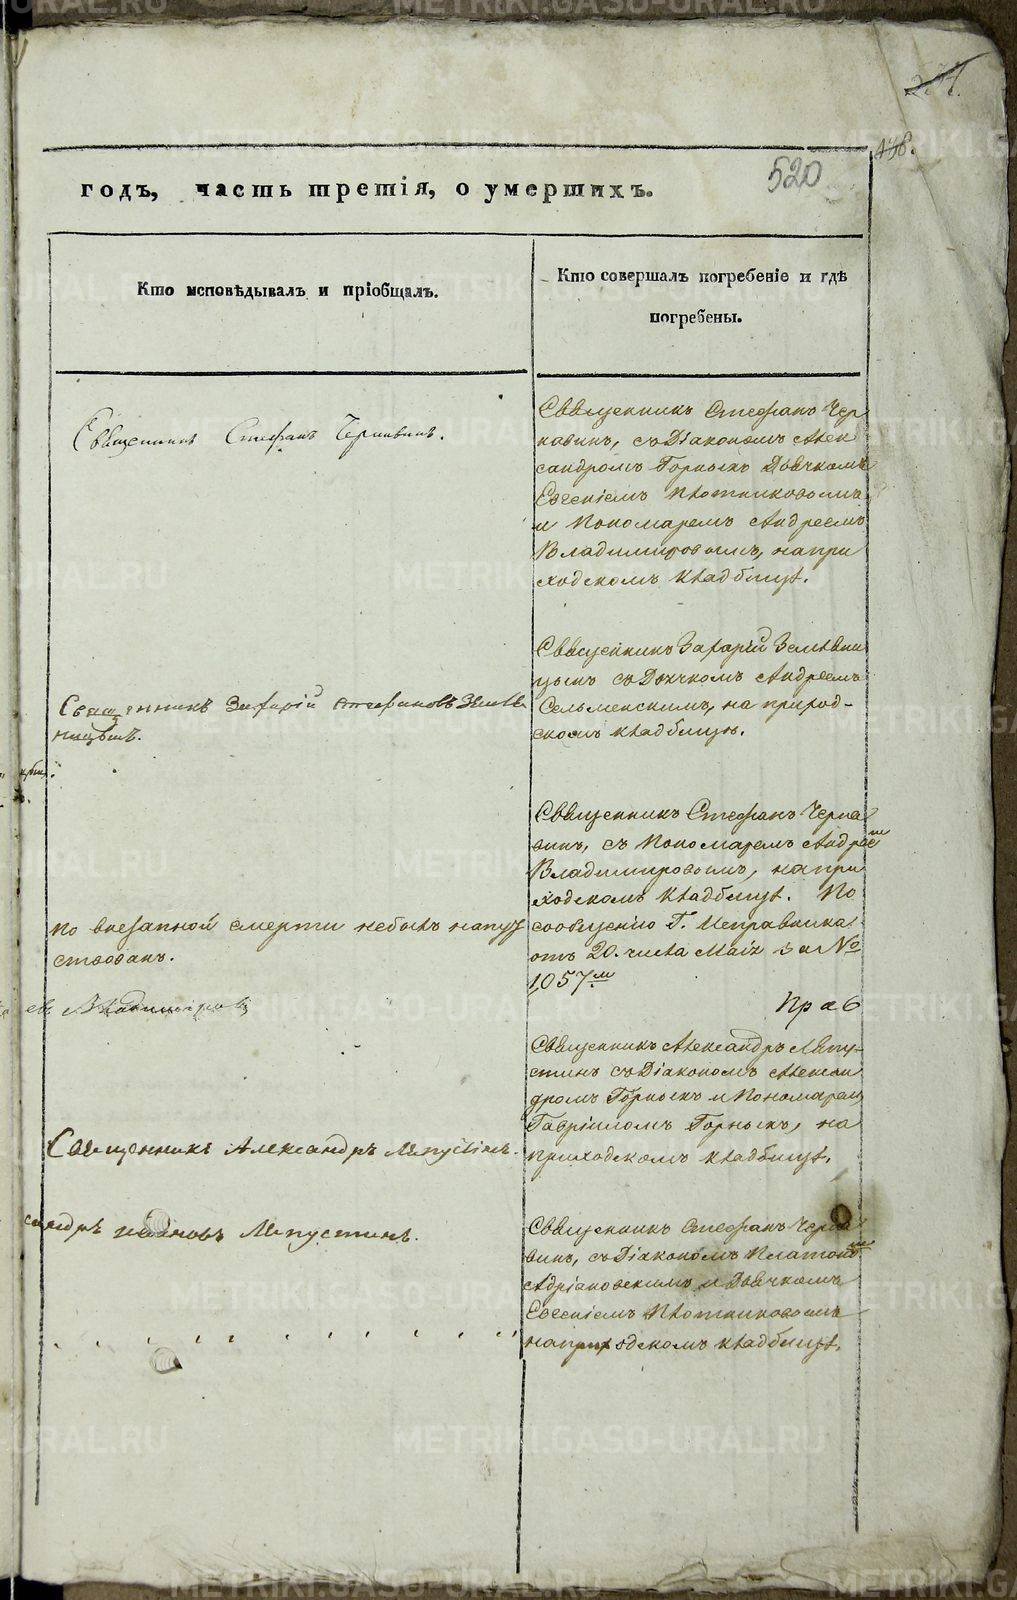 237.
436.
520
годъ, часть третія, о умершихъ.
Кто исповѣдывалъ и пріобщалъ.
Кто совершалъ погребеніе и гдѣ
погребены.
Священникъ Стефанъ Чернавинъ.
Священникъ Стефанъ Чер
навинъ, съ Діакономъ Алек
сандромъ Горныхъ Дьячкомъ
Евгеніемъ Плотниковымъ
и Пономаремъ Андреемъ
Владимировымъ, на при
ходскомъ кладбищѣ.
Священникъ Захарій Стефановъ Земля
ницынъ.
Священникъ Захарій Земляни
цынъ съ Дьячкомъ Андреемъ
Сельменскимъ, на приход-
скомъ кладбищѣ.
по внезапной смерти небылъ напут
ствованъ.
Священникъ Стефанъ Черна
винъ, съ Пономаремъ Андрее
Владимировымъ, на при
ходскомъ кладбищѣ. По
сообщенію Г. Исправника
отъ 20. числа Маія за №
1,057.мъ
Владимировъ
Прав
Священникъ Александръ Лапустинъ.
Священникъ Александръ Лапу-
стинъ съ Діакономъ Алексан
дромъ Горныхъ и Пономарем
Гавріиломъ Горныхъ, на
приходскомъ кладбищѣ.
сандръ Ивановъ Лапустинъ.
Священникъ Стефанъ Черна
винъ, съ Діакономъ Платоно
Адріановскимъ и Дьячкомъ
Евгеніемъ Плотниковымъ
на приходскомъ кладбищѣ.
METRIKI.GASO-URAL.RU